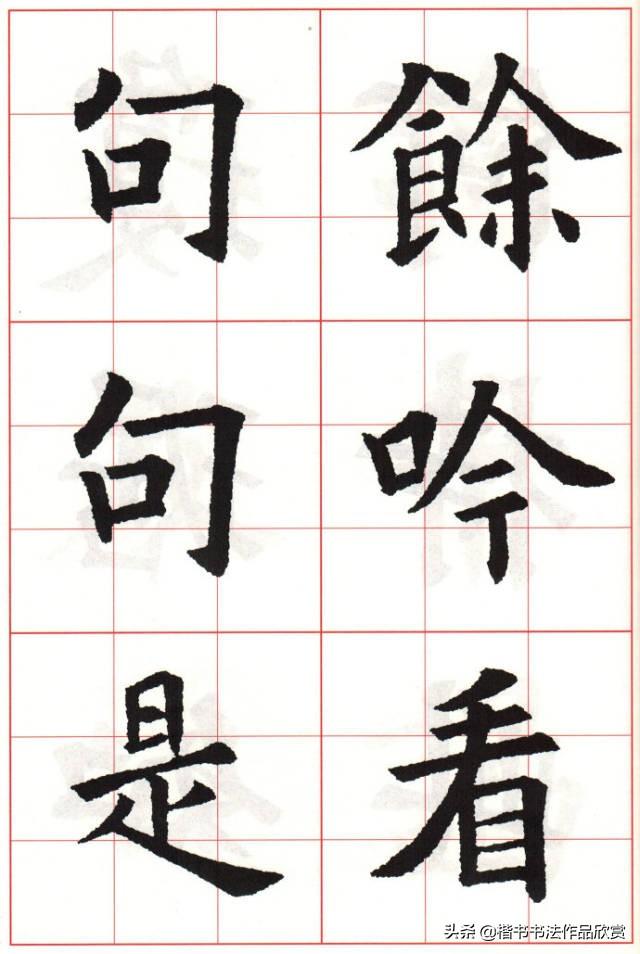 餘吟看
句句是
头条 @楷书书法作品欣赏